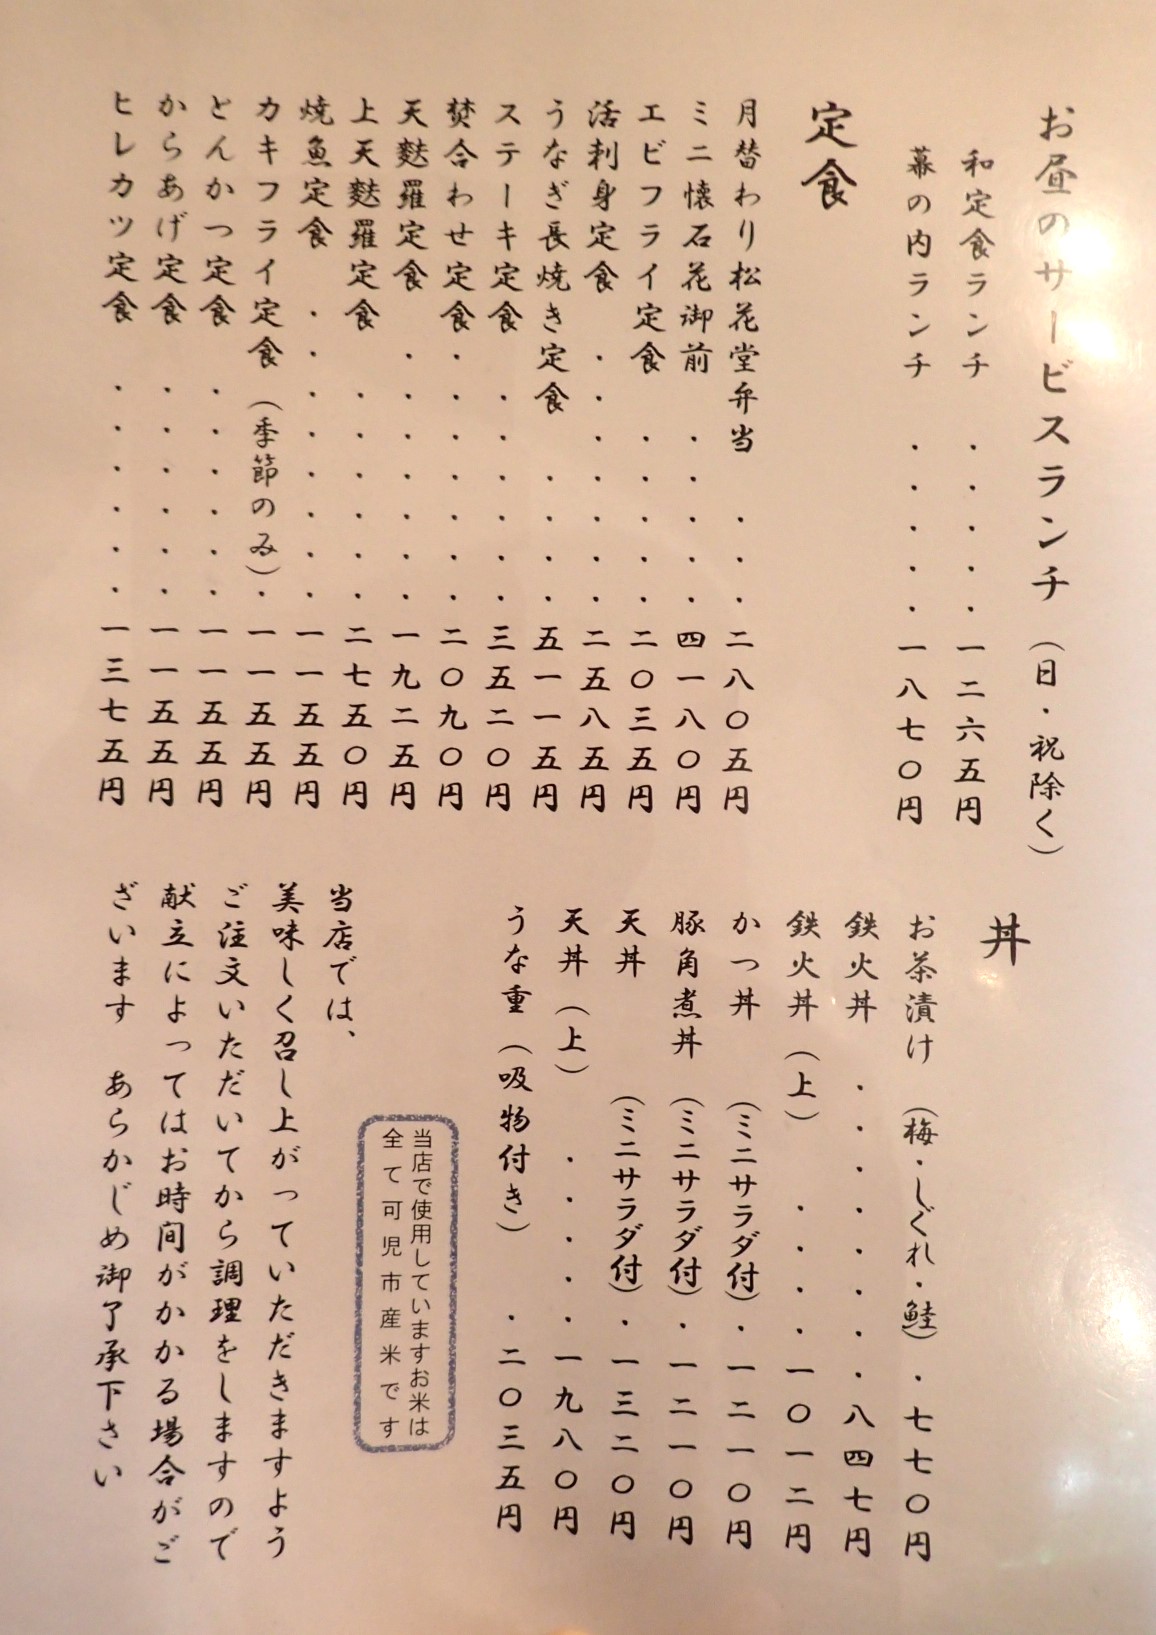 お昼のサービスランチ（日・祝除く）
和定食ランチ・・・・・一二六五円
幕の内ランチ・・・・・一八七〇円
定食
月替わり松花堂弁当・・・二八〇五円
ミニ懐石花御前・・・・・四一八〇円
エビフライ定食・・・・・二〇三五円
活刺身定食・・・・・・・二五八五円
うなぎ長焼き定食・・・・五一一五円
ステーキ定食・・・・・・三五二〇円
焚合わせ定食・・・・・・・二〇九〇円
天麩羅定食・・・・・・・一九二五円
上天麩羅定食・・・・・・二七五〇円
焼魚定食・・・・・・・・一一五五円
カキフライ定食（季節のみ）・一一五五円
とんかつ定食・・・・・・一一五五円
からあげ定食・・・・・・一一五五円
ヒレカツ定食・・・・・・一三七五円
丼
お茶漬け（梅・しぐれ・鮭）・七七〇円
鉄火丼・・・・・・・・八四七円
鉄火丼（上）・・・・一〇一二円
かつ丼（ミニサラダ付）・一二一〇円
豚角煮丼（ミニサラダ付）・一二一〇円
天丼（ミニサラダ付）・一三二〇円
天丼（上）・・・・・一九八〇円
うな重（吸物付き）・二〇三五円
当店で使用していますお米は
全て可児市産米です
当店では、
美味しく召し上がっていただきますよう
ご注文いただいてから調理をしますので
献立によってはお時間がかかる場合がご
ざいます　あらかじめ御了承下さい